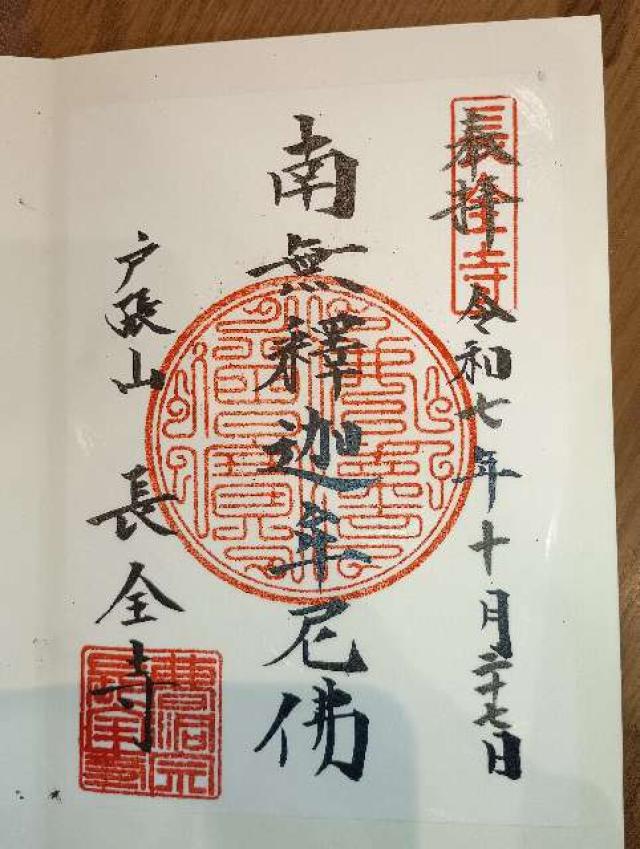 奉拝
長全寺
令和七年十月二十七日
南無釋迦牟尼佛
戸張山
長全寺
曹洞宗
長全寺